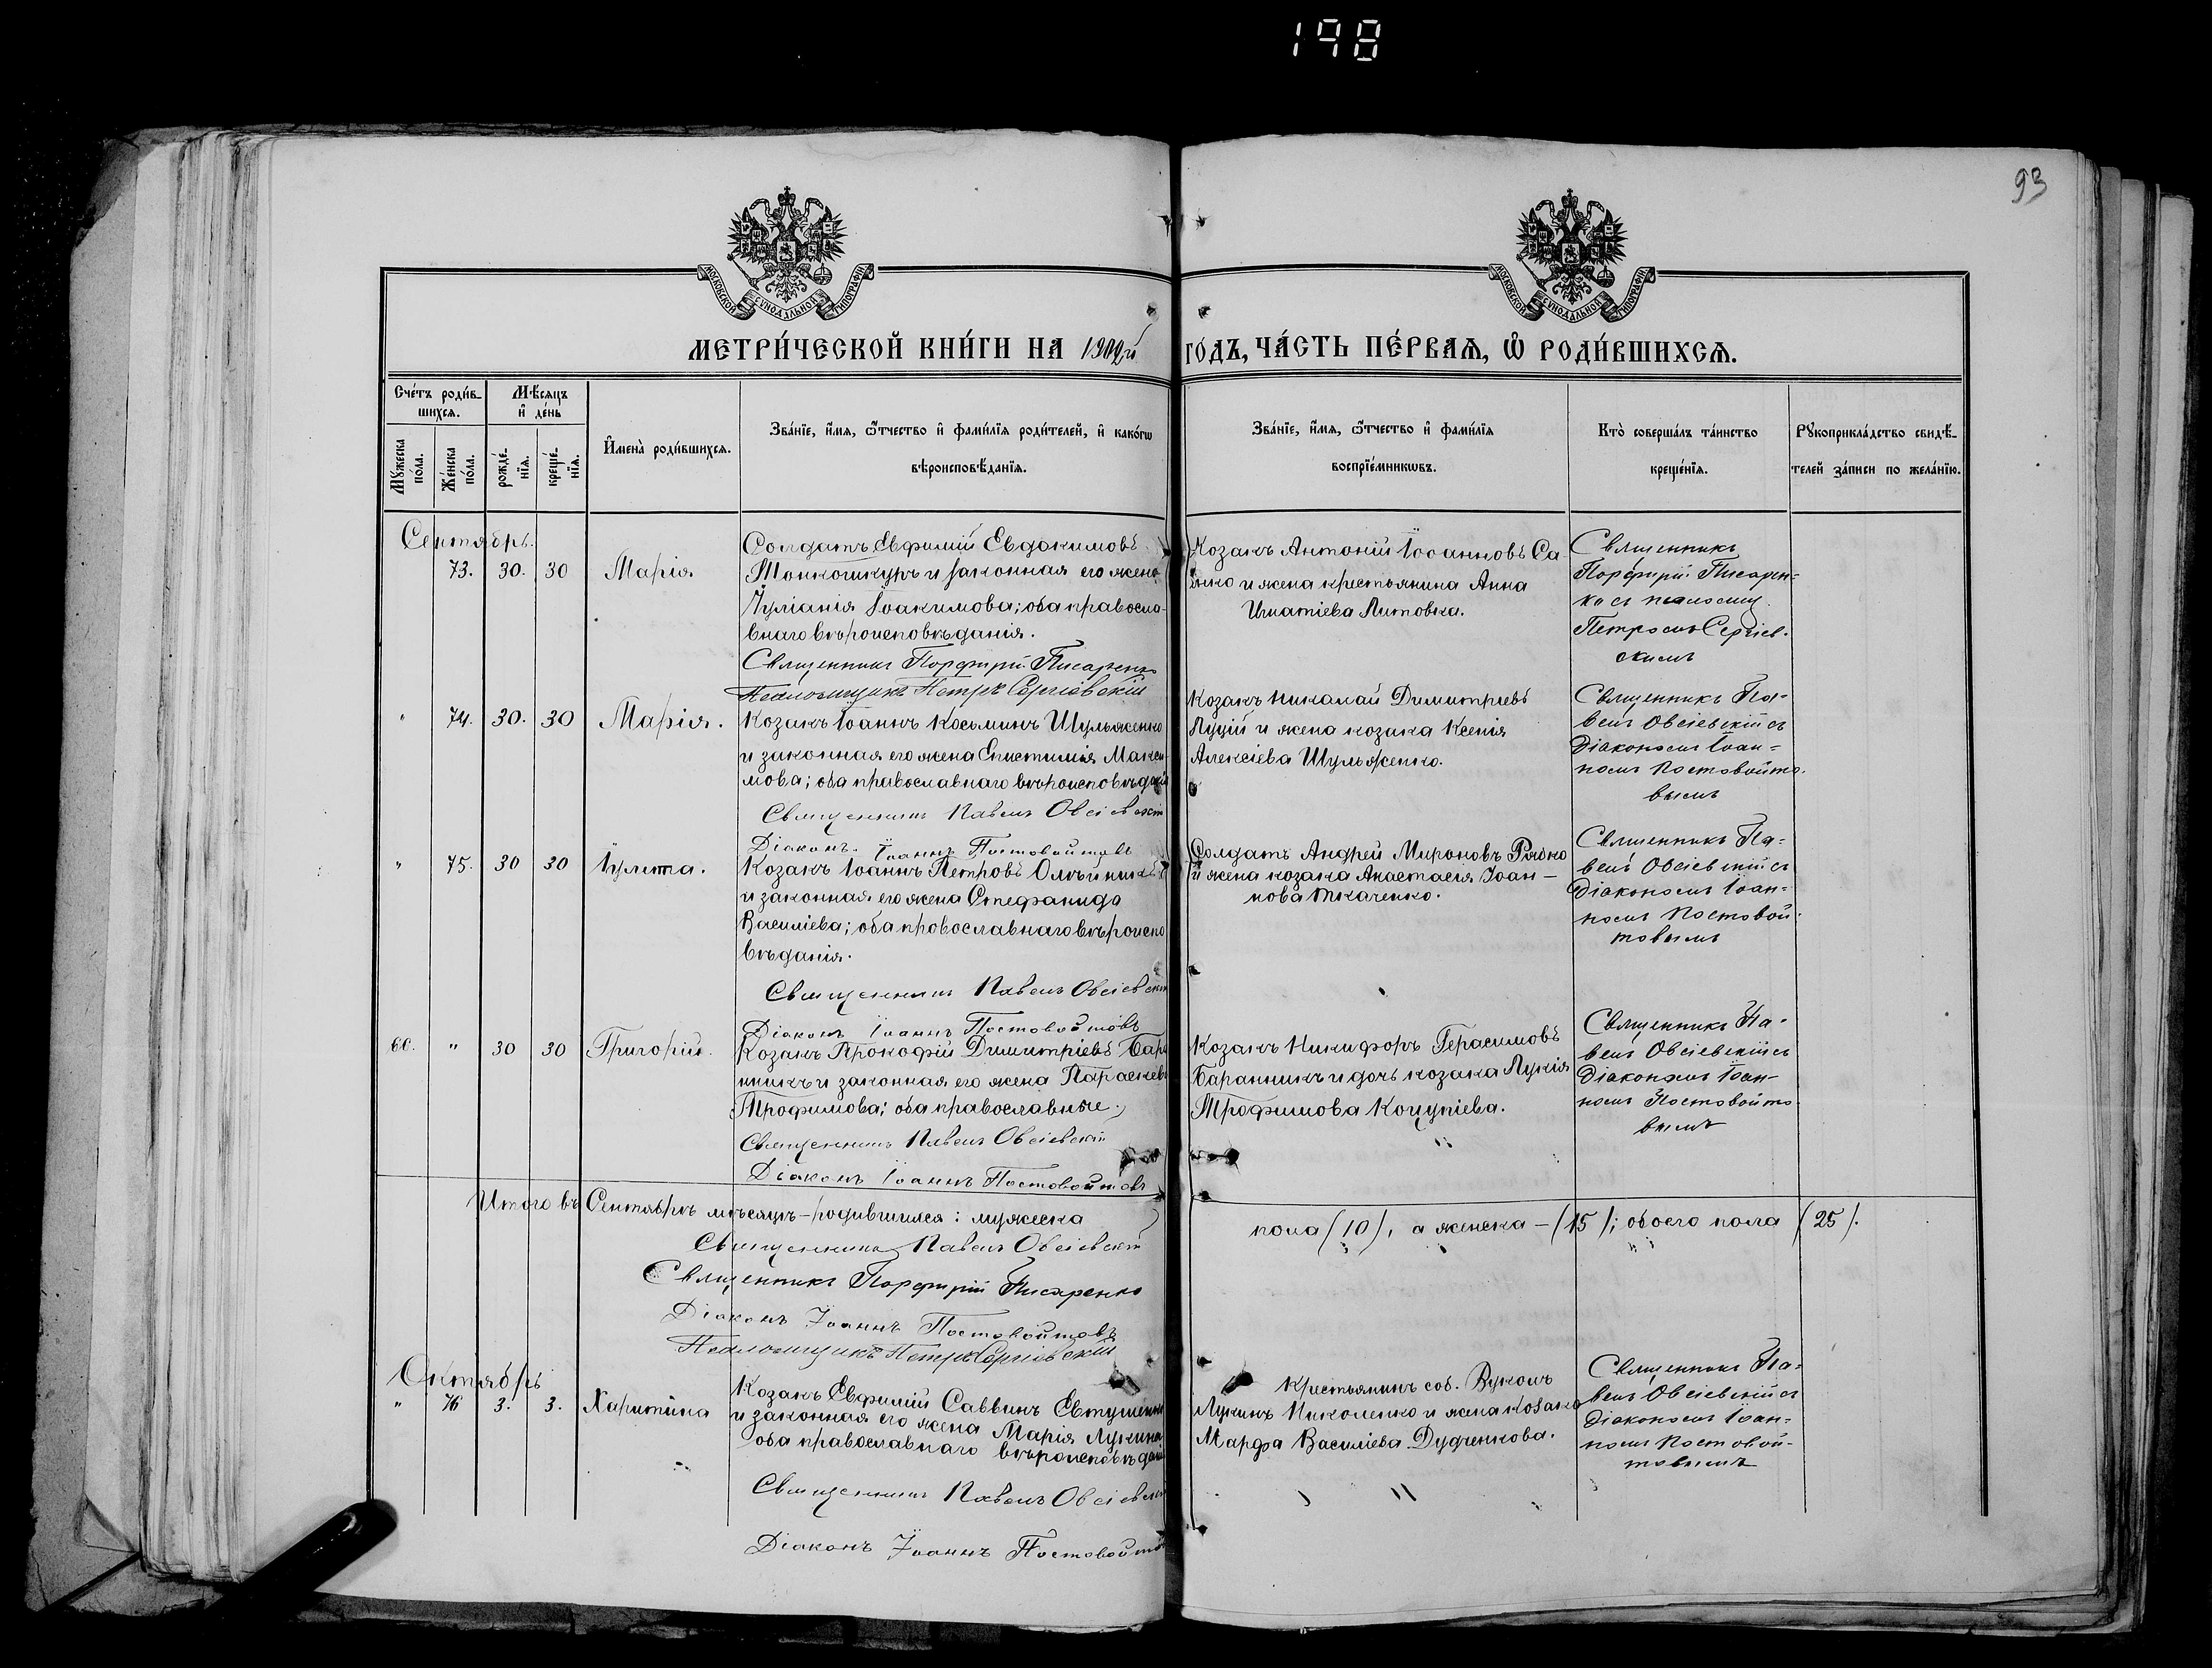 198
93
МОСКОВСКОЙ СѴНОДАЛЬНОЙ ТИПОГРАФІИ
МОСКОВСКОЙ СѴНОДАЛЬНОЙ ТИПОГРАФІИ
МЕТРИ́ЧЕСКОЙ КНИ́ГИ НА 1902й ГО́ДЪ, ЧА́СТЬ ПЕ́РВАѦ, Ѡ҆ РОДИ́ВШИХСѦ.
Сче́тъ роди́в-
шихсѧ.
Мꙋжеска по́ла.
Же́нска по́ла.
Мѣ́сѧцъ
и҆ де́нь
рожде́-
нїѧ.
креще́-
нїѧ.
И҆мена̀ роди́вшихсѧ.
Зва́нїе, и҆́мѧ, ѻ҆́тчество и҆ фами́лїѧ роди́телей, и҆ како́гѡ
вѣроисповѣ́данїѧ.
Зва́нїе, и҆́мѧ, ѻ҆́тчество и҆ фами́лїѧ
воспрїе́мникѡвъ.
Кто̀ соверша́лъ та́инство
креще́нїѧ.
Рꙋкоприкла́дство свидѣ́-
телей за́писи по жела́нїю.
Сентябрь.
73. 30. 30 Марія
Солдатъ Евфимій Евдокимовъ
Тонкошкуръ и законная его жена
Іуліанія Іоакимова; оба правосла-
внаго вѣроисповѣданія.
Священникъ Порфирій Писаренко
Псаломщикъ Петръ Сергіевскій
Козакъ Антоній Іоанновъ Са-
енко и жена крестьянина Анна
Игнатіева Литовка.
Священникъ
Порфирій Писарен-
ко съ псаломщ.
Петромъ Сергіев-
скимъ
" 74. 30. 30 Марія.
Козакъ Іоаннъ Косьминъ Шульженко
и законная его жена Епистимія Макси-
мова; оба православнаго вѣроисповѣданія
Священникъ Павелъ Овсіевскій
Діаконъ Іоаннъ Постовойтовъ
Козакъ Николай Димитріевъ
Луцій и жена козака Ксенія
Алексіева Шульженко.
Священникъ Па-
велъ Овсіевскій съ
Діакономъ Іоан-
номъ Постовойто-
вымъ
" 75. 30 30 Іулита.
Козакъ Іоаннъ Петровъ Олѣйникъ
и законная его жена Стефанида
Василіева; оба православнаго вѣроиспо
вѣданія.
Священникъ Павелъ Овсіевскій
Діаконъ Іоаннъ Постовойтовъ
Солдатъ Андрей Мироновъ
и жена козака Анастасія Іоан-
нова Ткаченко.
Священникъ Па-
велъ Овсіевскій съ
Діакономъ Іоан-
номъ Постовой-
товымъ
60. " 30 30 Григорій.
Козакъ Прокофій Димитріевъ Бара
нникъ и законная его жена Параскева
Трофимова; оба православные.
Священникъ Павелъ Овсіевскій
Діаконъ Іоаннъ Постовойтовъ
Козакъ Никифоръ Герасимовъ
Баранникъ и дочь козака Лукія
Трофимова
Священникъ Па-
велъ Овсіевскій съ
Діакономъ Іоан-
номъ Постовойто-
вымъ
Итого въ Сентябрѣ мѣсяцѣ - родившихся: мужеска пола (10), а женска - (15); обоего пола (25).
Священникъ Павелъ Овсіевскій
Священникъ Порфирій Писаренко
Діаконъ Іоаннъ Постовойтовъ
Псаломщикъ Петръ Сергіевскій
Октябрь
" 76 3. 3. Харитина
Козакъ Евфимій Саввинъ Евтушенко
и законная его жена Марія Лукина
оба православнаго вѣроисповѣданія
Священникъ Павелъ Овсіевскій
Діаконъ Іоаннъ Постовойтовъ
Крестьянинъ соб. Вуколъ
Лукинъ Николенко и жена козака
Марфа Василіева Дудченкова.
Священникъ Па-
велъ Овсіевскій съ
Діакономъ Іоан-
номъ Постовой-
товымъ